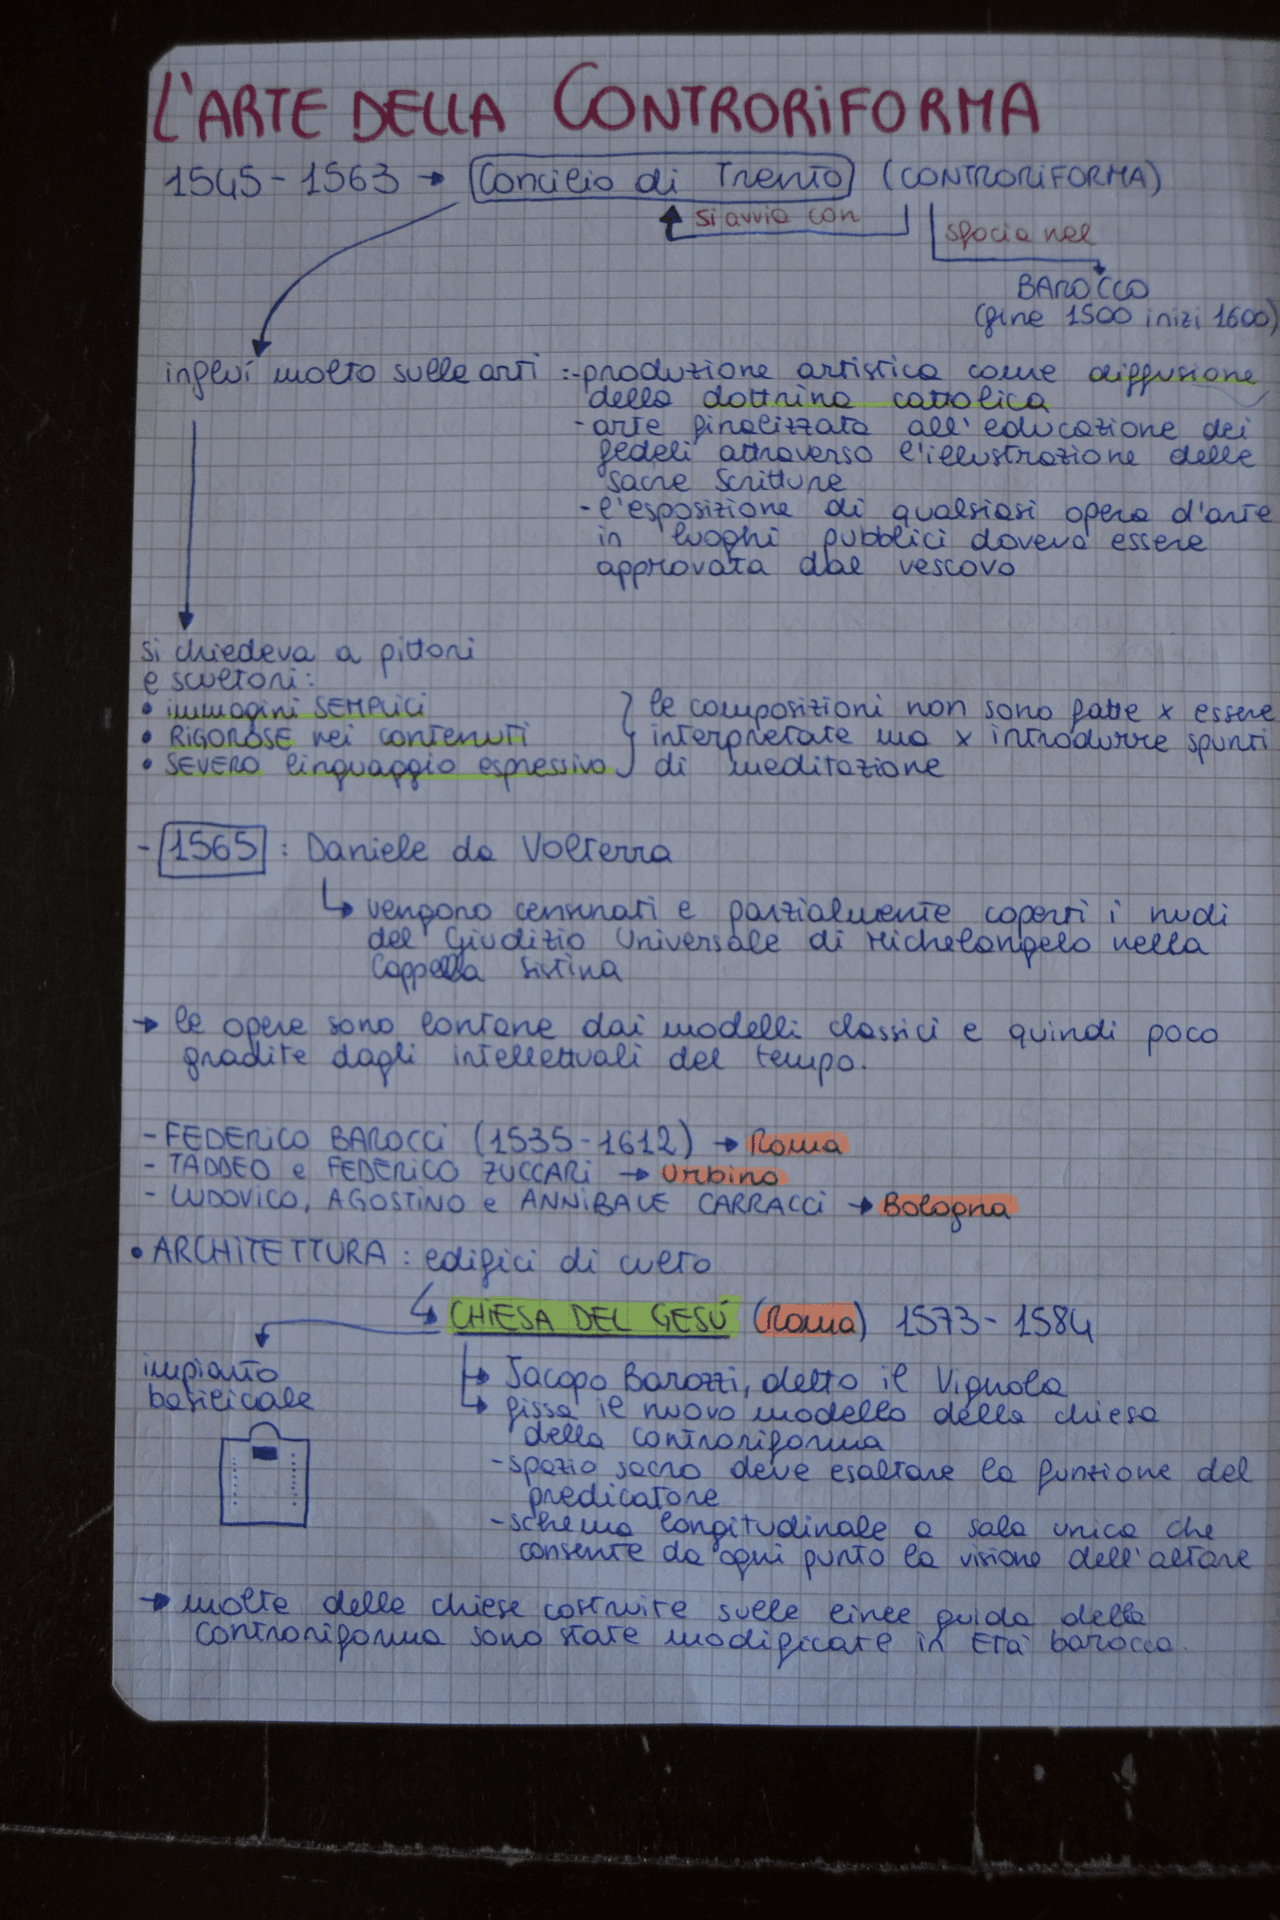 L'ARTE DELLA CONTRORIFORMA
1545-1563 → Concilio di Trento (CONTRORIFORMA)
si avvia con
sfocia nel
BAROCCO
(fine 1500 inizi 1600)
influì molto sulle arti :-produzione artistica come diffusione
della dottrina cattolica
-arte finalizzata all'educazione dei
fedeli attraverso l'illustrazione delle
sacre scritture
-l'esposizione di qualsiasi opera d'arte
in luoghi pubblici doveva essere
approvata dal vescovo
si chiedeva a pittori
e scultori:
• immagini SEMPLICI
• RIGOROSE nei contenuti
• SEVERO linguaggio espressivo
le composizioni non sono fatte x essere
interpretate ma x introdurre spunti
di meditazione
- 1565 : Daniele da Volterra
↳ vengono censurati e parzialmente coperti i nudi
del Giudizio Universale di Michelangelo nella
Cappella Sistina
→ le opere sono lontane dai modelli classici e quindi poco
gradite dagli intellettuali del tempo.
- FEDERICO BAROCCI (1535-1612) → Roma
- TADDEO e FEDERICO ZUCCARI → Urbino
- LUDOVICO, AGOSTINO e ANNIBALE CARRACCI → Bologna
• ARCHITETTURA : edifici di culto
↳ CHIESA DEL GESÚ (Roma) 1573-1584
impianto
basilicale
↳ Jacopo Barozzi, detto il Vignola
↳ fissa il nuovo modello della chiesa
della controriforma
-spazio sacro deve esaltare la funzione del
predicatore
-schema longitudinale a sala unica che
consente da ogni punto la visione dell'altare
→ molte delle chiese costruite sulle linee guida della
controriforma sono state modificate in Età barocca.